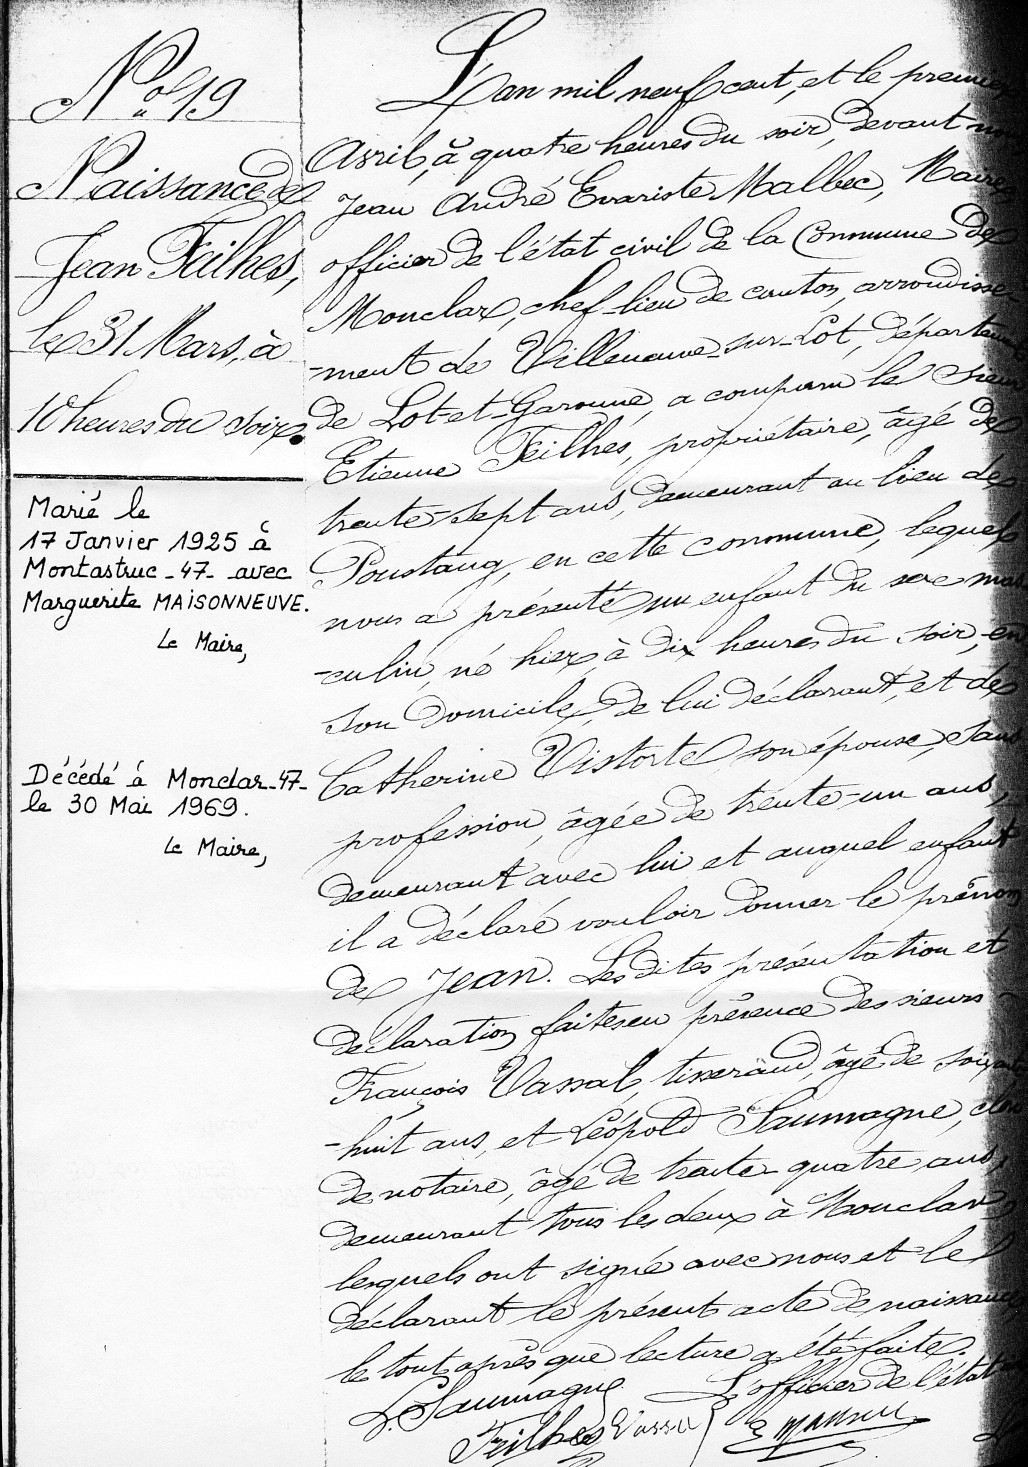 N° 19
Naissance de
Jean Feilhes,
le 31 Mars, à
10 heures du soir.
Marié le
17 Janvier 1925 à
Montastruc - 47 - avec
Marguerite MAISONNEUVE.
Le Maire,
Décédé à Monclar - 47 -
le 30 Mai 1969.
Le Maire,
L'an mil neuf cent, et le premier
Avril, à quatre heures du soir, devant
Jean André Evariste Malbec, Maire,
officier de l'état civil de la Commune de
Monclar, chef-lieu de canton, arrondisse-
-ment de Villeneuve-sur-Lot, départem
de Lot-et-Garonne, a comparu le Sieur
Etienne Feilhes, propriétaire, âgé de
trente-sept ans, demeurant au lieu de
en cette commune, lequel
nous a présenté un enfant du sexe mas
-culin, né hier, à dix heures du soir, en
son domicile, de lui déclarant, et de
Catherine Vistorte son épouse, sans
profession, âgée de trente-un ans,
demeurant avec lui et auquel enfant
il a déclaré vouloir donner le prénom
de Jean. Les dites présentation et
déclaration faites en présence des sieurs
François Vassal, tisserand, âgé de soixant
-huit ans, et Léopold Saumagne, clerc
de notaire, âgé de trente-quatre ans,
demeurant tous les deux à Monclar,
lesquels ont signé avec nous et le
déclarant le présent acte de naissance
le tout après que lecture a été faite.
L. Saumagne L'officier de l'état
Feilhes Vassal